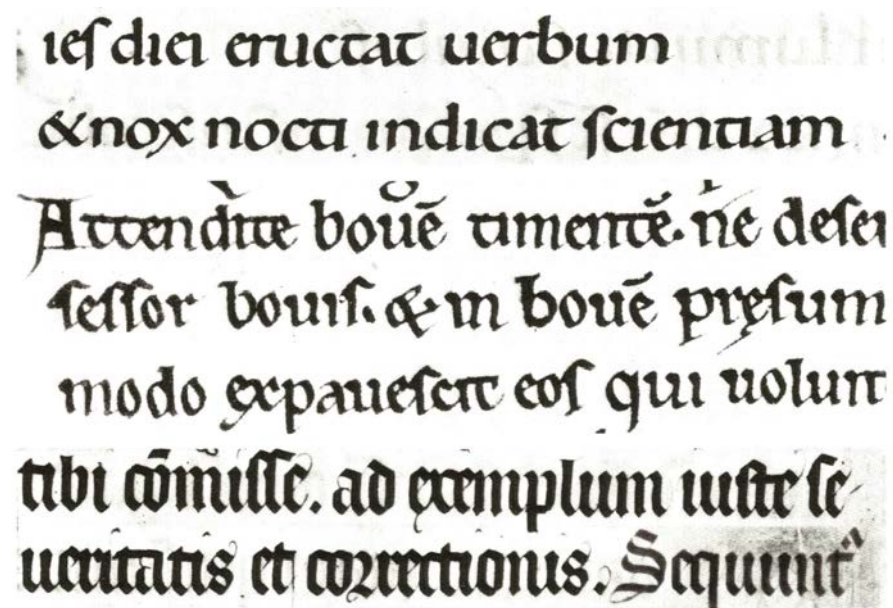 ieſ diei eructat uerbum
& nox nocti indicat ſcientiam
Attendite bouē timentē. ne deſei
ſeſſor bouiſ. & in bouē pręſum
modo expaueſcit eoſ qui uolunt
tibi cōmiſſe. ad exemplum iuſte ſe
ueritatis et correctionis. Sequunt᷑